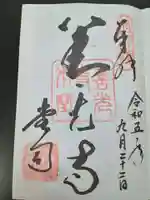 奉拝
令和五年
九月二十二日
善光寺
堂司